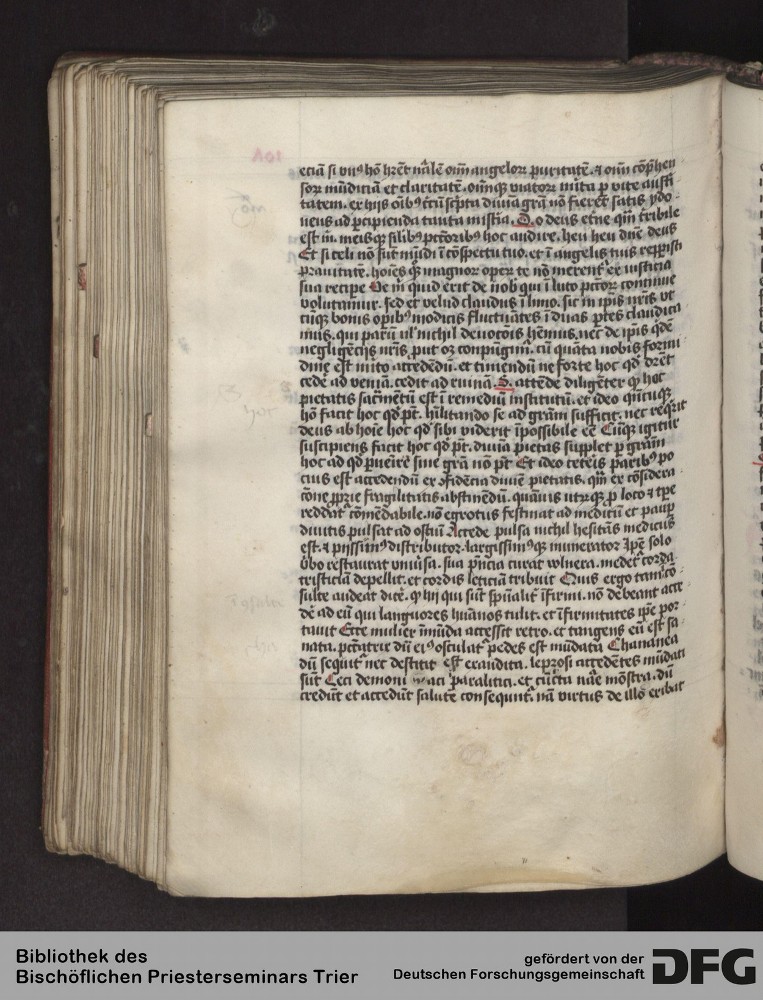 eciā si vnꝰ hō hr̄et nālē om̄ angelorꝝ puritatē ⁊ om̄ cōp̄hen
sorꝝ mūdiciā et claritatē omniūqꝫ viatorꝝ
tatem. ex hijs oībꝰ diuīa grā nō fieret satis ydo
neus ad ꝑcipienda tanta misteria. D. o deus et ne qm̄ tribile
est m̄. meisqꝫ silibꝰ pctōribꝰ hoc audire. heu heu dn̄e deus
Et si celi nō sūt mūdi ī cōspectu tuo. et ī angelis tuis repperisti
prauitatē. hoīes qꝫ magnorꝝ oꝑum te nō merent̄ ex iusticia
sua recipe Ve m̄ quid erit de nobis qui ī luto pctōrꝝ continue
volutamur. sed et velud claudus ī limo. sic in ip̄is nr̄is vt
cūqꝫ bonis oꝑibꝰ modicis fluctuātes ī duas ꝑtes claudica
mus. qui parū ul' nichil deuocōis hēmus. nec de ip̄is qdē
negligēcijs nr̄is put oꝫ conpūgim̄. cū quāta nobis formi
dine est mīto accedēdū. et timendū ne forte hoc qd dr̄et
cedē ad veniā. cedit ad ruinā. S. attēde diligēter qꝫ hoc
pietatis sacrmētū est ī remediū institutū. et ideo qn̄cūqꝫ
hō facit hoc qd pt̄. hūilitando se ad grām sufficit. nec reqrit
deus ab hoīe hoc qd sibi viderit īpossibile eē Cūqꝫ igitur
suscipiens facit hoc qd pt̄. diuīa pietas supplet ꝑ grām
hoc ad qd ꝑuenire sine grā nō pt̄ Et ideo ceteris paribꝰ po
cius est accedendū ex ꝯfidēcia diuīe pietatis. qm̄ ex cōsidera
cōne ꝓprie fragilitatis abstinēdū. quāuis vtrūqꝫ ꝓ loco ⁊ tꝑe
reddat̄ cōmēdabile. nō egrotus festinat ad medicū et paup
diuitis pulsat ad ostiū Accede pulsa nichil hesitās medicus
est. ⁊ pijssimꝰ distributor. largissimꝰqꝫ munerator Ip̄e solo
v̄bo restaurat vniūsa. sua p̄ncia curat vulnera. medet̄ corda
tristiciā depellit. et cordis leticiā tribuit Quis ergo tam īco
sulte audeat dicē. qꝫ hij qui sūt sp̄ualit̄ īfirmi. nō debeant acce
dē ad eū qui languores hūanos tulit. et īfirmitates ip̄e por
tauit Ecce mulier īmūda accessit retro. et tangens eū est sa
nata. pctātrix dū eiꝰ osculat̄ pedes est mūdata Chananea
dū sequit̄ nec destitit est exaudita. leprosi accedētes mūdati
sūt Ceci demoni aci paralitici. et cūcta nāe mōstra. dū
credūt et accedūt salutē consequunt̄. nā virtus de illo exibat
Bibliothek des
Bischöflichen Priesterseminars Trier
gefördert von der
Deutschen Forschungsgemeinschaft
DFG